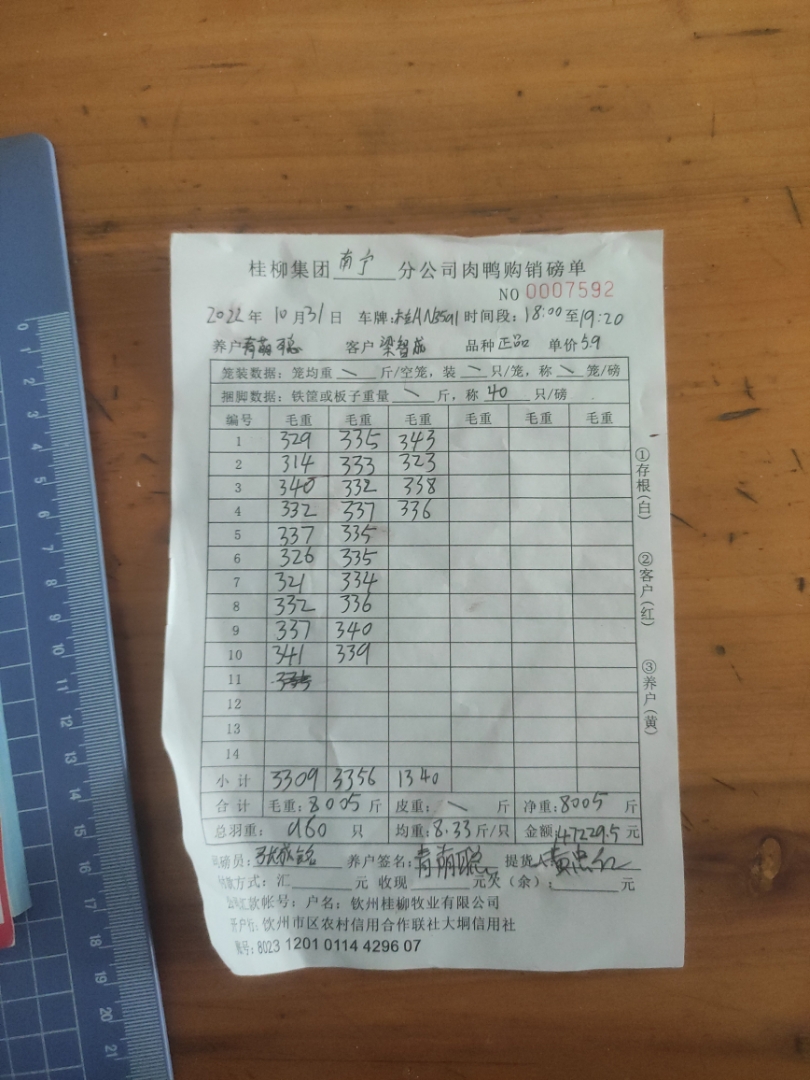 桂柳集团 南宁 分公司肉鸭购销磅单
NO 0007592
2022年 10月31日 车牌: 时间段:18:00至19:20
养户 客户 梁智成 品种 正品 单价 5.9
笼装数据:笼均重 \ 斤/空笼,装 \ 只/笼,称 \ 笼/磅
捆脚数据:铁筐或板子重量 \ 斤,称 40 只/磅
编号 毛重 毛重 毛重 毛重 毛重 毛重
1 329 335 343
2 314 333 323
3 340 332 338
4 332 337 336
5 337 335
6 326 335
7 321 334
8 332 336
9 337 340
10 341 339
11
12
13
14
小计 3309 3356 1340
合计 毛重:8005斤 皮重: \ 斤 净重:8005 斤
总羽重: 960 只 均重:8.33斤/只 金额:47229.5元
磅员: 养户签名: 提货人
付款方式:汇 元 收现 元欠(余): 元
汇款帐号:户名:钦州桂柳牧业有限公司
开户行:钦州市区农村信用合作联社大垌信用社
账号:8023 1201 0114 4296 07
①存根(白)
②客户(红)
③养户(黄)
0
1
2
3
4
5
6
7
8
9
10
11
12
13
14
15
16
17
18
19
20
21